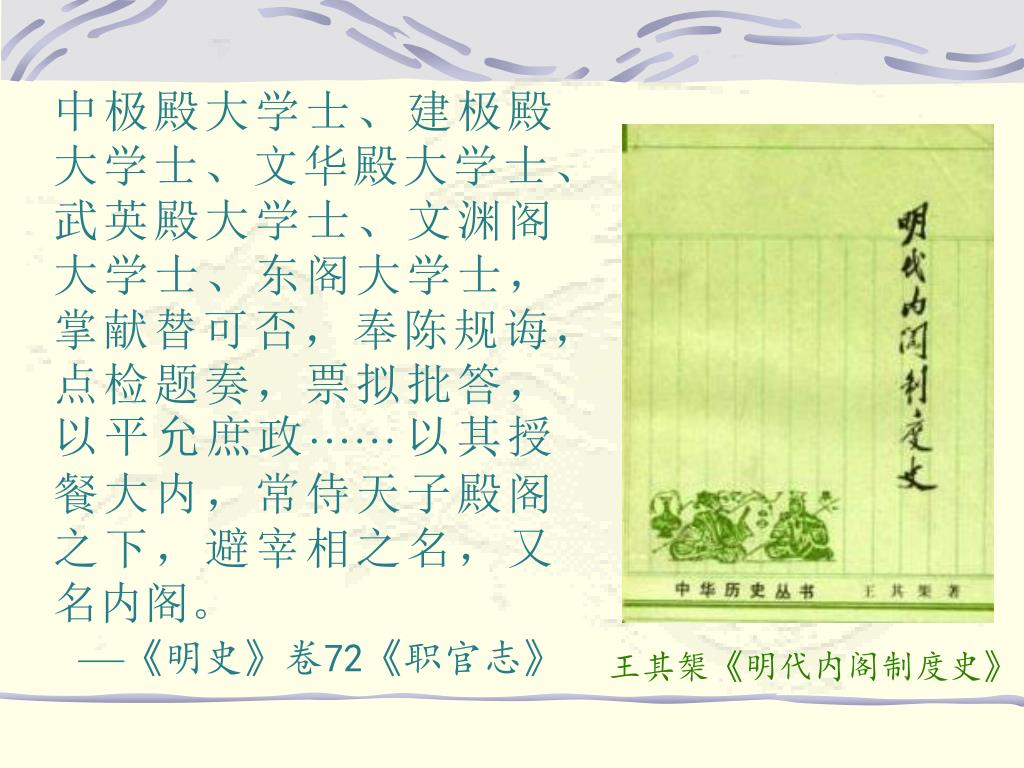 中极殿大学士、建极殿
大学士、文华殿大学士、
武英殿大学士、文渊阁
大学士、东阁大学士，
掌献替可否，奉陈规诲，
点检题奏，票拟批答，
以平允庶政……以其授
餐大内，常侍天子殿阁
之下，避宰相之名，又
名内阁。
—《明史》卷72《职官志》
明代内阁制度史
中华历史丛书 王其榘著
王其榘《明代内阁制度史》